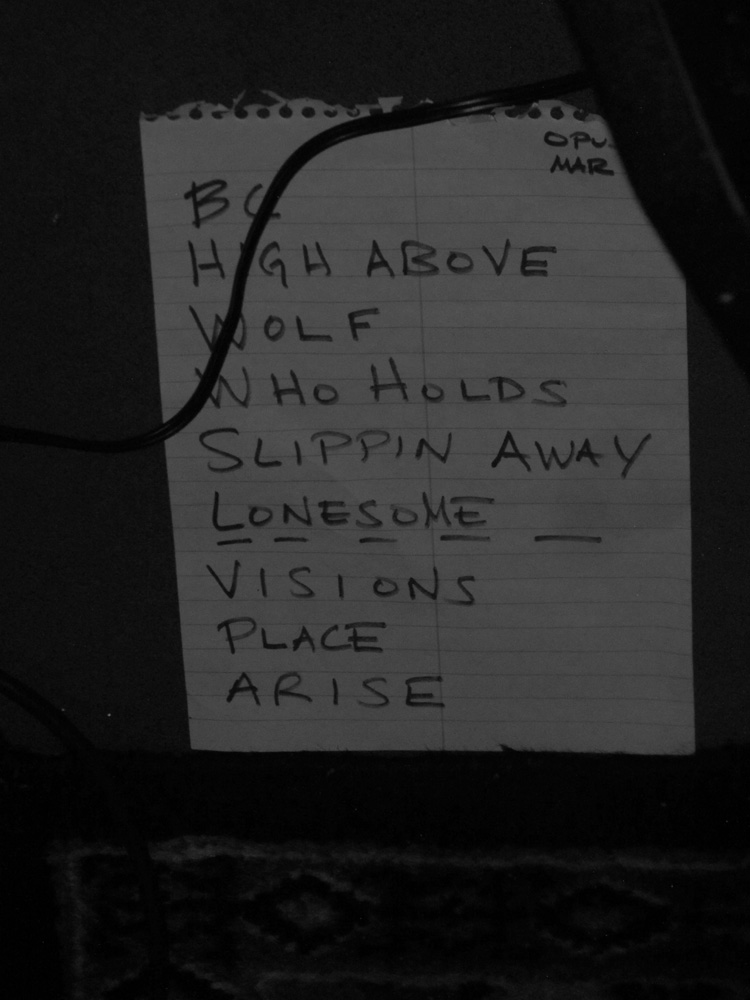 OPU
MAR
BC
HIGH ABOVE
WOLF
WHO HOLDS
SLIPPIN AWAY
LONESOME
VISIONS
PLACE
ARISE